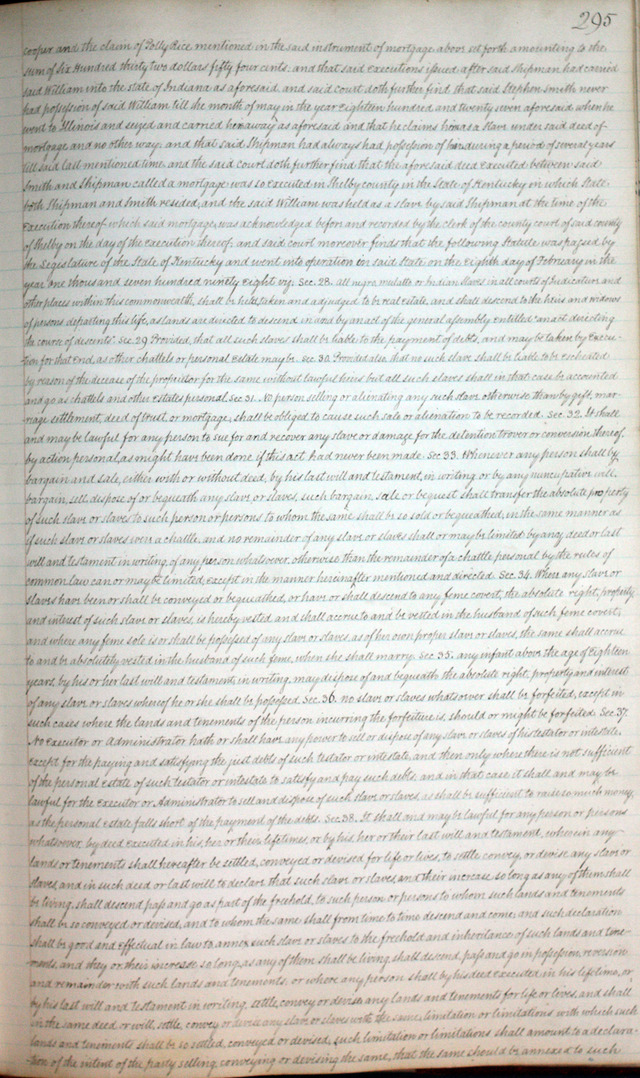 295
Cooper and the claim of Polly Rice mentioned in the said instrument of mortgage above set forth amounting to the
sum of six Hundred thirty two dollars fifty four cents. and that said executions issued after said Shipman had carried
said William into the state of Indiana as aforesaid, and said court doth further find that said Stephen Smith never
had possession of said William till the month of may in the year eighteen hundred and twenty seven aforesaid when he
went to Illinois and seized and carried him away as aforesaid and that he claims him as a slave under said deed of
mortgage and no other way. and that said Shipman had always had possession of him during a period of several years
till said last mentioned time. and the said court doth further find that the aforesaid deed executed between said
Smith and Shipman called a mortgage was so executed in Shelby county in the State of Kentucky in which State
both Shipman and Smith resided, and the said William was held as a slave by said Shipman at the time of the
execution thereof which said mortgage, was acknowledged before and recorded by the clerk of the county court of said county
of Shelby on the day of the execution thereof. and said court moreover finds that the following Statute was passed by
the Legislature of the State of Kentucky and went into operation in said State on the eighth day of February in the
year one thousand seven hundred ninety eight viz. Sec. 28. all negro, mulatto or Indian slaves in all courts of Judicature and
other places within this commonwealth, shall be held, taken and adjudged to be real estate, and shall descend to the heirs and widows
of persons departing this life, as lands are directed to descend in and by an act of the general assembly entitled "an act directing
the course of descents" Sec. 29. Provided, that all such slaves shall be liable to the payment of debts, and may be taken by execu-
tion for that end, as other chattels or personal estate may be. Sec. 30. Provided also that no such slave shall be liable to be escheated
by reason of the decease of the proprietor for the same without lawful heirs but all such slaves shall in that case be accounted
and go as chattels and other estates personal. Sec. 31. No person selling or alienating any such slave otherwise than by gift, mar-
riage settlement, deed of trust or mortgage, shall be obliged to cause such sale or alienation to be recorded. Sec. 32. It shall
and may be lawful for any person to sue for and recover any slave or damage for the detention trover or conversion thereof,
by action personal, as might have been done if this act had never been made. Sec. 33. Whenever any person shall by
bargain and sale, either with or without deed, by his last will and testament, in writing or by any nuncupative will,
bargain, sell, dispose of or bequeath any slave or slaves, such bargain, sale or bequest shall transfer the absolute property
of such slave or slaves to such person or persons to whom the same shall be so sold or bequeathed, in the same manner as
if such slave or slaves were a chattle, and no remainder of any slave or slaves shall or may be limited by any deed or last
will and testament in writing, of any person whatsoever, otherwise than the remainder of a chattle personal by the rules of
common law can or may be limited, except in the manner hereinafter mentioned and directed. Sec. 34. Where any slave or
slaves have been or shall be conveyed or bequeathed, or have or shall descend to any feme covert, the absolute right, property
and interest of such slave or slaves, is hereby vested and shall accrue to and be vested in the husband of such feme covert;
and where any feme sole is or shall be possessed of any slave or slaves, as of her own proper slave or slaves, the same shall accrue
to and be absolutely vested in the husband of such feme, when she shall marry. Sec. 35. any infant above the age of eighteen
years, by his or her last will and testament, in writing, may dispose of and bequeath the absolute right, property and interest
of any slave or slaves whereof he or she shall be possessed. Sec. 36. no slave or slaves whatsoever shall be forfeited, except in
such cases where the lands and tenements of the person incurring the forfeiture is, should or might be forfeited. Sec. 37.
No executor or Administrator hath or shall have any power to sell or dispose of any slave or slaves of his testator or intestate,
except for the paying and satisfying the just debts of such testator or intestate, and then only where there is not sufficient
of the personal estate of such testator or intestate to satisfy and pay such debts, and in that case it shall and may be
lawful for the Executor or Administrator to sell and dispose of such slave or slaves, as shall be sufficient to raise so much money,
as the personal estate falls short of the payment of the debts. Sec. 38. It shall and may be lawful for any person or persons
whatsoever, by deed executed in his, her or their lifetimes, or by his, her or their last will and testament, wherein any
lands or tenements shall hereafter be settled, conveyed or devised for life or lives, to settle, convey, or devise any slave or
slaves, and in such deed or last will to declare that such slave or slaves and their increase so long as any of them shall
be living, shall descend pass and go as part of the freehold, to such person, or persons to whom such lands and tenements
shall be so conveyed or devised, and to whom the same shall from time to time descend and come, and such declaration
shall be good and effectual in law to annex such slave or slaves to the freehold and inheritance of such lands and tene-
ments, and they or their increase so long, as any of them shall be living, shall descend, pass and go in possession, reversion
and remainder with such lands and tenements, or where any person shall by his deed executed in his lifetime, or
by his last will and testament in writing, settle, convey or devise any lands and tenements for life or lives, and shall
in the same deed, or will, settle, convey or devise any slave or slaves with the same, limitation or limitations with which such
lands and tenements shall be so settled, conveyed or devised, such limitation or limitations shall amount to a declara-
tion of the intent of the party selling, conveying or devising the same, that the same should be annexed to such